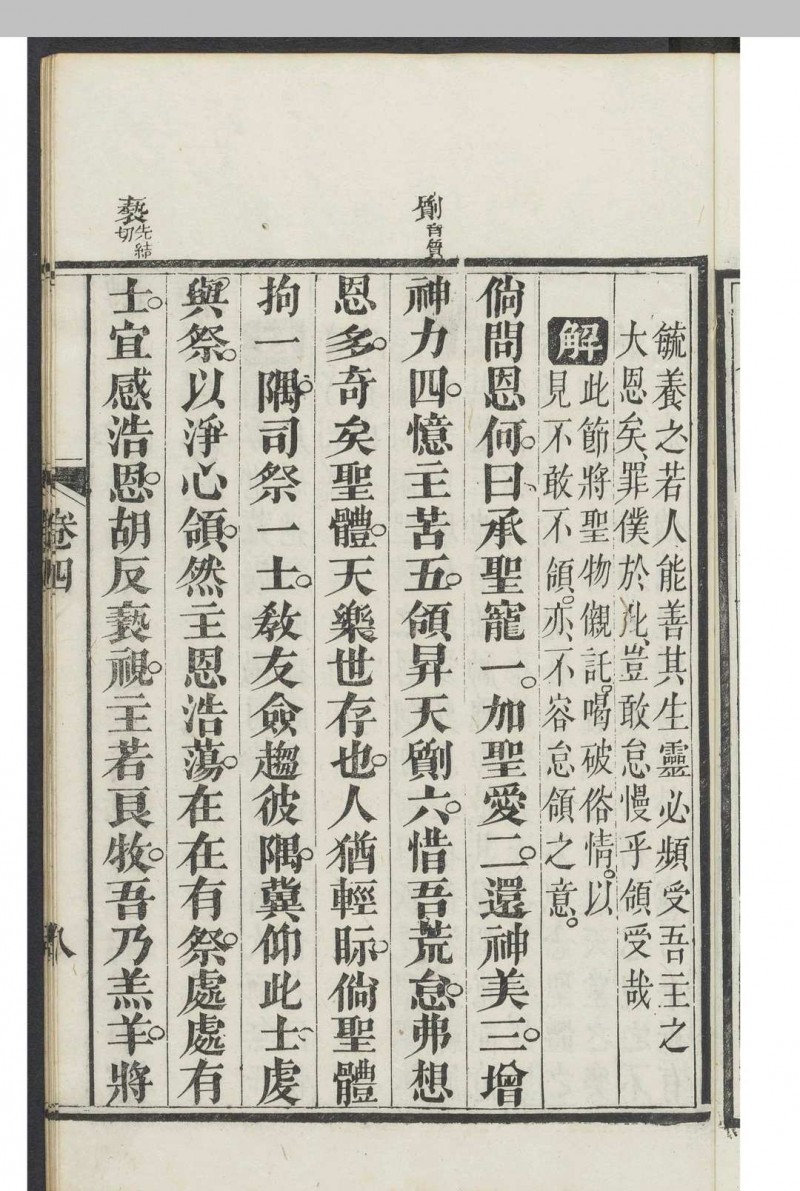 毓養之若人能善其生靈必頻受吾主之
大恩矣、罪僕於此、豈敢怠慢乎領受哉
解
此節將聖物儭託。喝破俗情。以
見不敢不領。亦、不容怠領之意。
倘問恩何。曰、承聖寵一。加聖愛二。還神美三。增
神力四。憶主苦五。領昇天劕六。惜吾荒怠。弗想
恩多。奇矣聖體。天樂世存也。人猶輕眎。倘聖體
拘一隅。司祭一士。教友僉趨彼隅。冀仰此士、處
與祭。以淨心領。然主恩浩蕩。在在有祭。處處有
士。宜感浩恩。胡反褻視。主若良牧。吾乃羔羊。將
劕音質
褻先結切
卷四
八